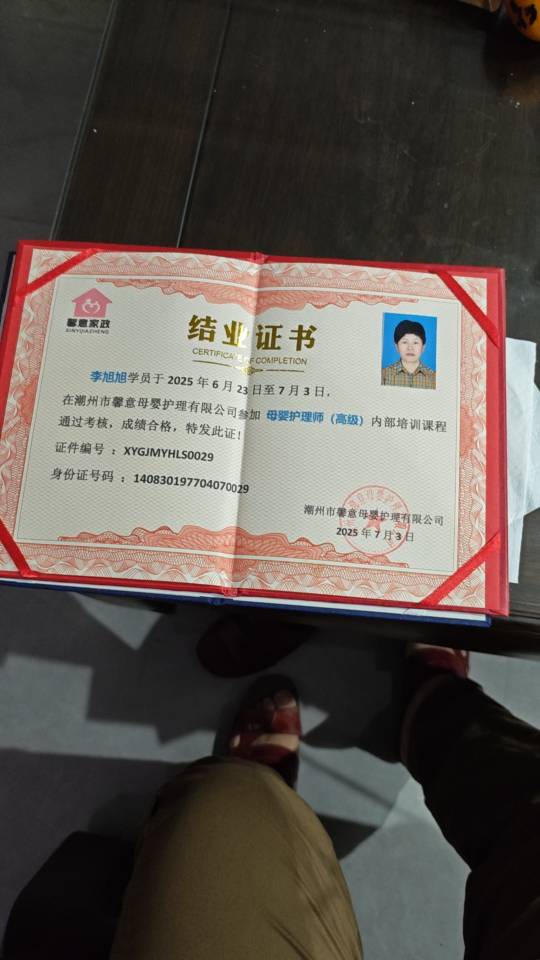 馨意家政
XINYIJIAZHENG
结业证书
CERTIFICATE OF COMPLETION
李旭旭学员于 2025 年 6 月 23 日至 7 月 3 日，
在潮州市馨意母婴护理有限公司参加 母婴护理师（高级）内部培训课程
通过考核，成绩合格，特发此证！
证件编号 ：XYGJMYHLS0029
身份证号码 ：140830197704070029
潮州市馨意母婴护理有限公司
2025 年 7 月 3 日